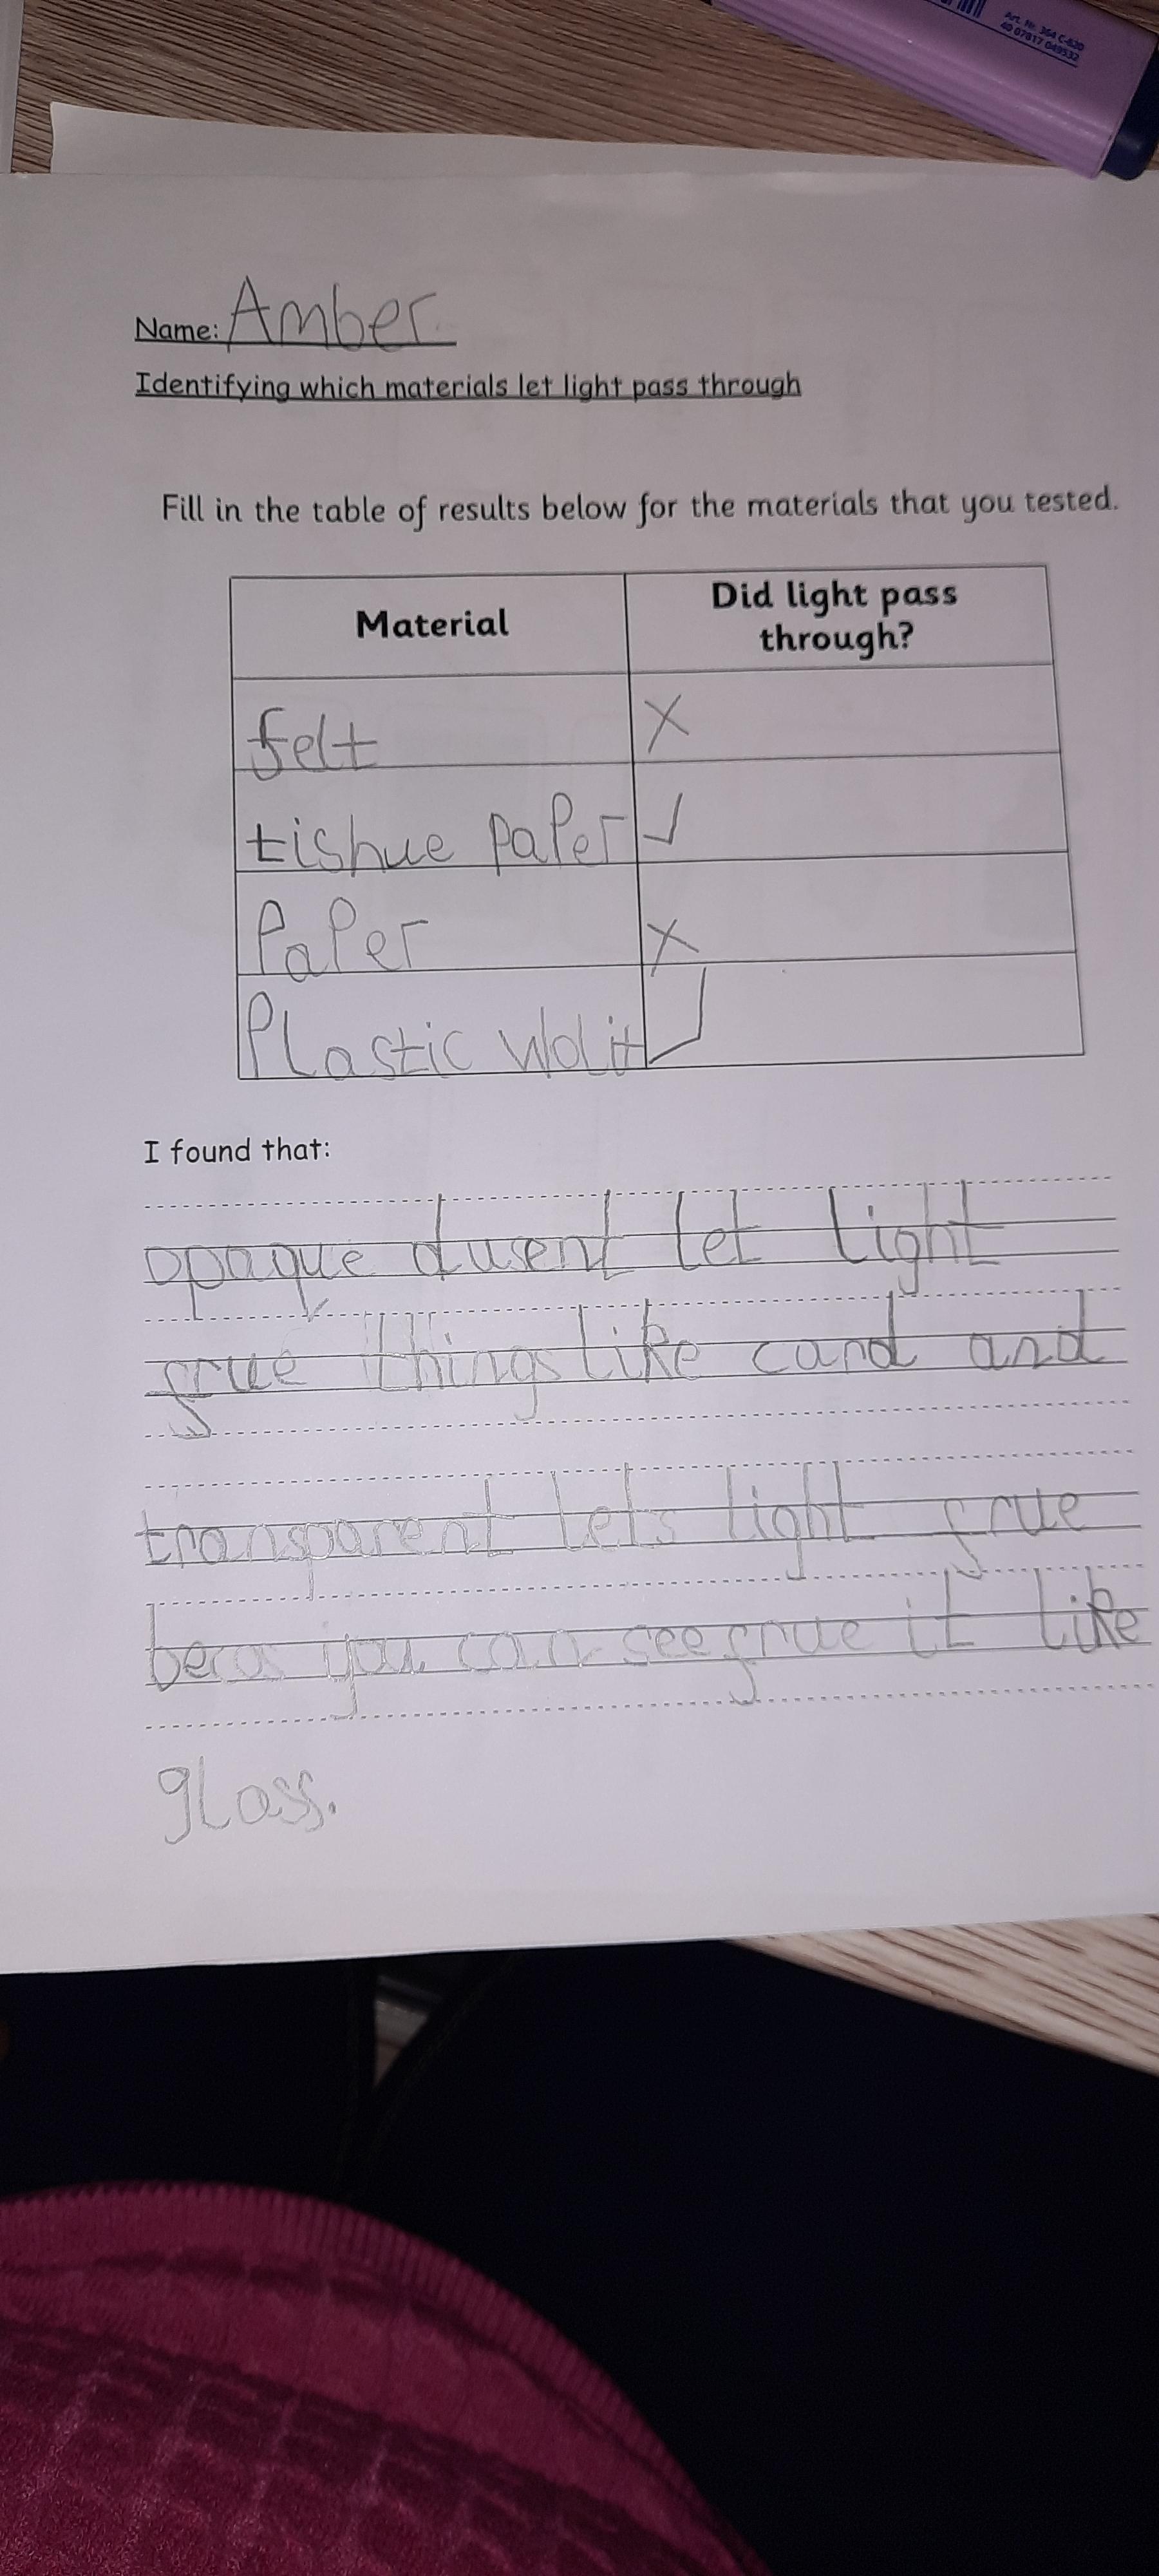 Art. Nr. 364 C-620
40 07817 049532
Name: Amber
Identifying which materials let light pass through
Fill in the table of results below for the materials that you tested.
Material
Did light pass
through?
felt X
tishue paper ✓
Paper X
Plastic ✓
I found that:
opaque dusent let light
frue things like card and
transparent lets light frue
becos you can see frue it like
glass.